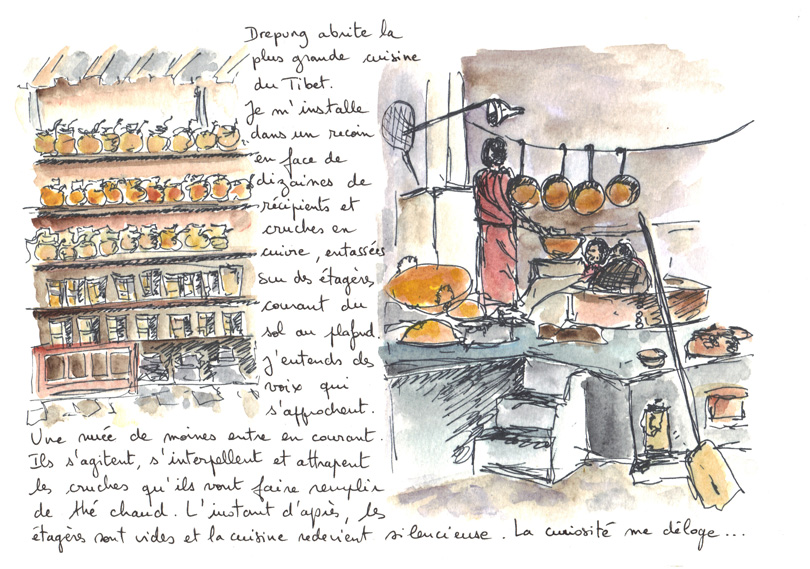 Drepung abrite la
plus grande cuisine
du Tibet.
Je m'installe
dans un recoin
en face de
dizaines de
récipients et
cruches en
cuivre, entassées
sur des étagères
courant du
sol au plafond.
J'entends des
voix qui
s'approchent.
Une nuée de moines entre en courant.
Ils s'agitent, s'interpellent et attrapent
les cruches qu'ils vont faire remplir
de thé chaud. L'instant d'après, les
étagères sont vides et la cuisine redevient silencieuse. La curiosité me déloge...